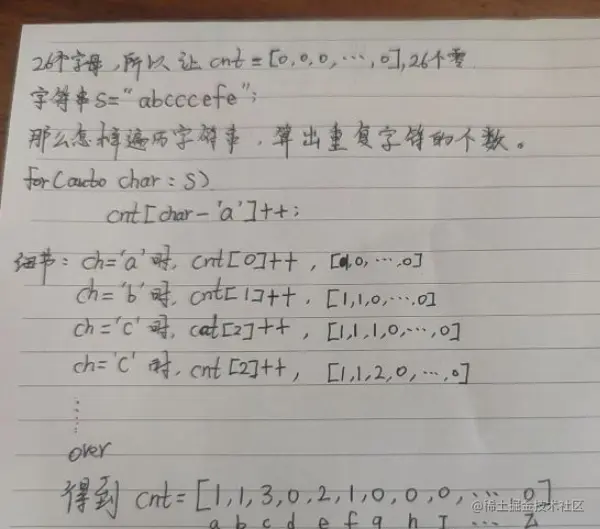 26个字母,所以让 cnt = [0,0,0,…,0],26个零
字符串S="abcccefe";
那么怎样遍历字符串,算出重复字符的个数。
for(auto char : S)
cnt[char-'a']++;
细节: ch='a'时, cnt[0]++, [1,0,…,0]
ch='b'时, cnt[1]++, [1,1,0,…,0]
ch='c'时, cnt[2]++, [1,1,1,0,…,0]
ch='c'时, cnt[2]++, [1,1,2,0,…,0]
……
over
得到 cnt=[1,1,3,0,2,1,0,0,0,…,0]
a b c d e f g h I … Z
@稀土掘金技术社区